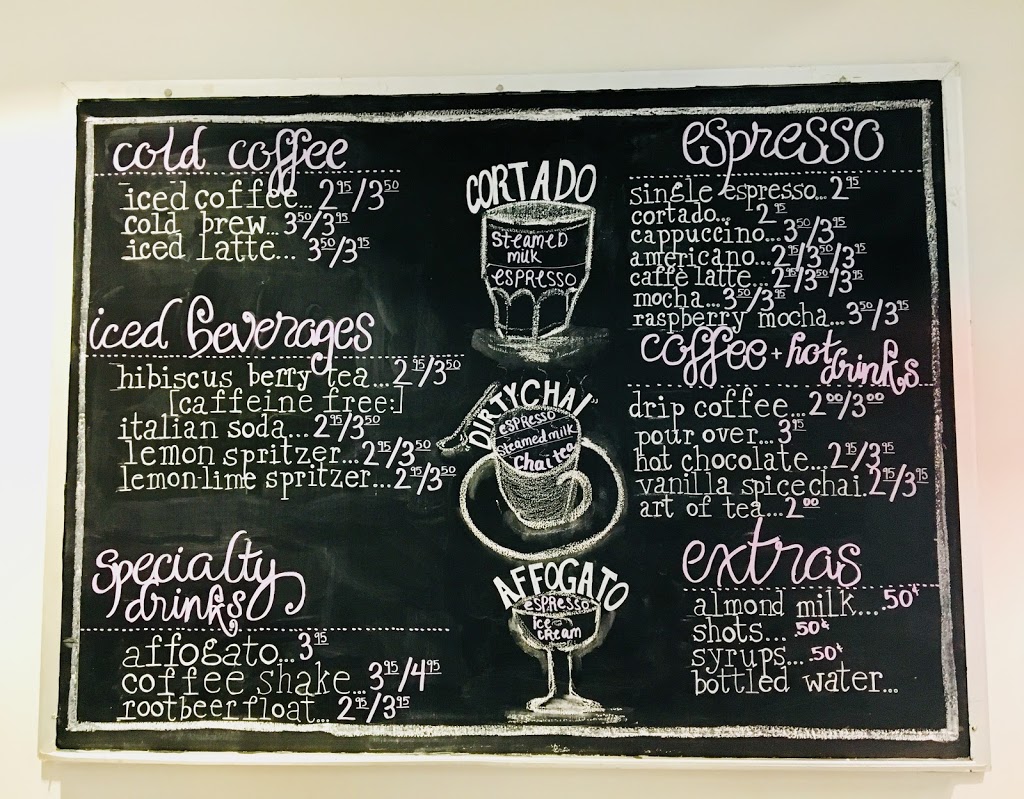 cold coffee
iced coffee... 2 95/3 50
cold brew... 3 50/3 95
iced latte... 3 50/3 95
iced beverages
hibiscus berry tea... 2 95/3 50
[caffeine free:]
italian soda... 2 95/3 50
lemon spritzer... 2 95/3 50
lemon-lime spritzer... 2 95/3 50
specialty
drinks
affogato... 3 95
coffee shake... 3 95/4 95
rootbeer float... 2 95/3 95
CORTADO
steamed
milk
espresso
"DIRTY CHAI"
espresso
steamed milk
chai tea
AFFOGATO
espresso
ice
cream
espresso
single espresso... 2 95
cortado... 2 95
cappuccino... 3 50/3 95
americano... 2 95/3 50/3 95
caffè latte... 2 95/3 50/3 95
mocha... 3 50/3 95
raspberry mocha... 3 50/3 95
coffee + hot
drinks
drip coffee... 2 00/3 00
pour over... 3 95
hot chocolate... 2 95/3 95
vanilla spice chai. 2 95/3 95
art of tea... 2 00
extras
almond milk.... .50¢
shots... .50¢
syrups... .50¢
bottled water...